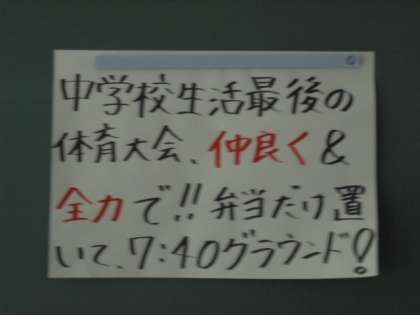 中学校生活最後の
体育大会、仲良く&
全力で!!弁当だけ置
いて、7:40グラウンド!